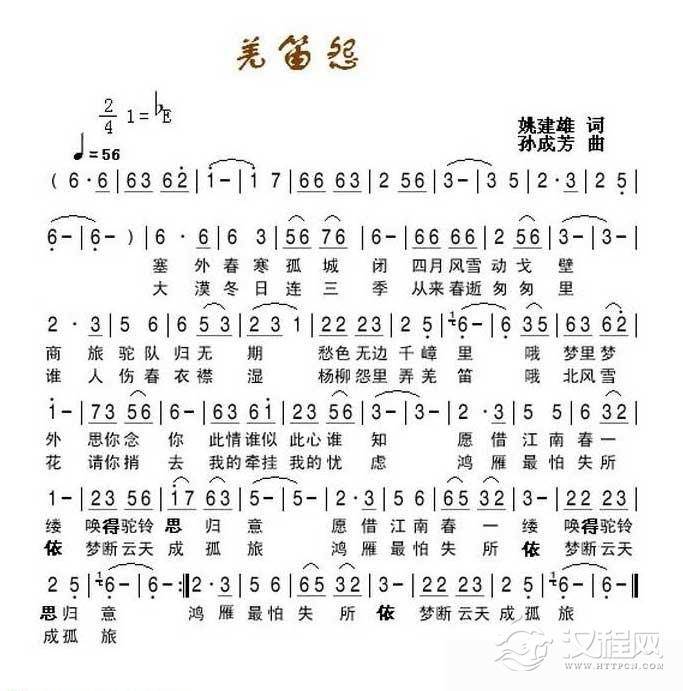 羌笛怨
2/4 1=♭E
姚建雄 词
♩=56
孙成芳 曲
(6·6|63 62|1-|1 7|66 63|2 56|3-|3 5|3·5|2 5|
6-|6-)|6· 6|6 3|56 76|6·3|66 66|2 5|3-|3-|
塞 外 春 寒 孤 城 闭 四月 风雪 动 戈 壁
大 漠 冬 日 连 三 季 从来 春逝 匆 匆 里
2·3|5 6|6 53|23 1|22 23|2 5|6-|6 35|63 62|
商 旅 驼 队 归 无 期 愁色 无边 千 嶂 里 哦 梦里 梦
谁 人 伤 春 衣 襟 湿 杨柳 怨里 弄 羌 笛 哦 北风 雪
1-|73 56|6-|63 61|23 56|3-|3-|2·3|5 5|6 32|
外 思你 念 你 此情 谁似 此心 谁 知 愿 借 江 南 春 一
花 请你 捎 去 我的 牵挂 我的 忧 虑 鸿 雁 最 怕 失 所
1-|23 56|17 63|5-|5-|2·3|5 6|65 32|3-|22 23|
缕 唤得 驼铃 思 归 意 愿 借 江 南 春 一 缕 唤得 驼铃
依 梦断 云天 成 孤 旅 鸿 雁 最 怕 失 所 依 梦断 云天
2 5|6-|6-:|2·3|5 6|65 32|3-|22 23|2 5|6-|6-|
思 归 意 鸿 雁 最 怕 失 所 依 梦断 云天 成 孤 旅
成 孤 旅
汉程网
WWW.HTTPCN.COM